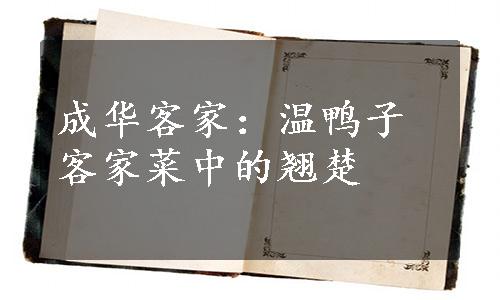 成华客家：温鸭子
客家菜中的翘楚